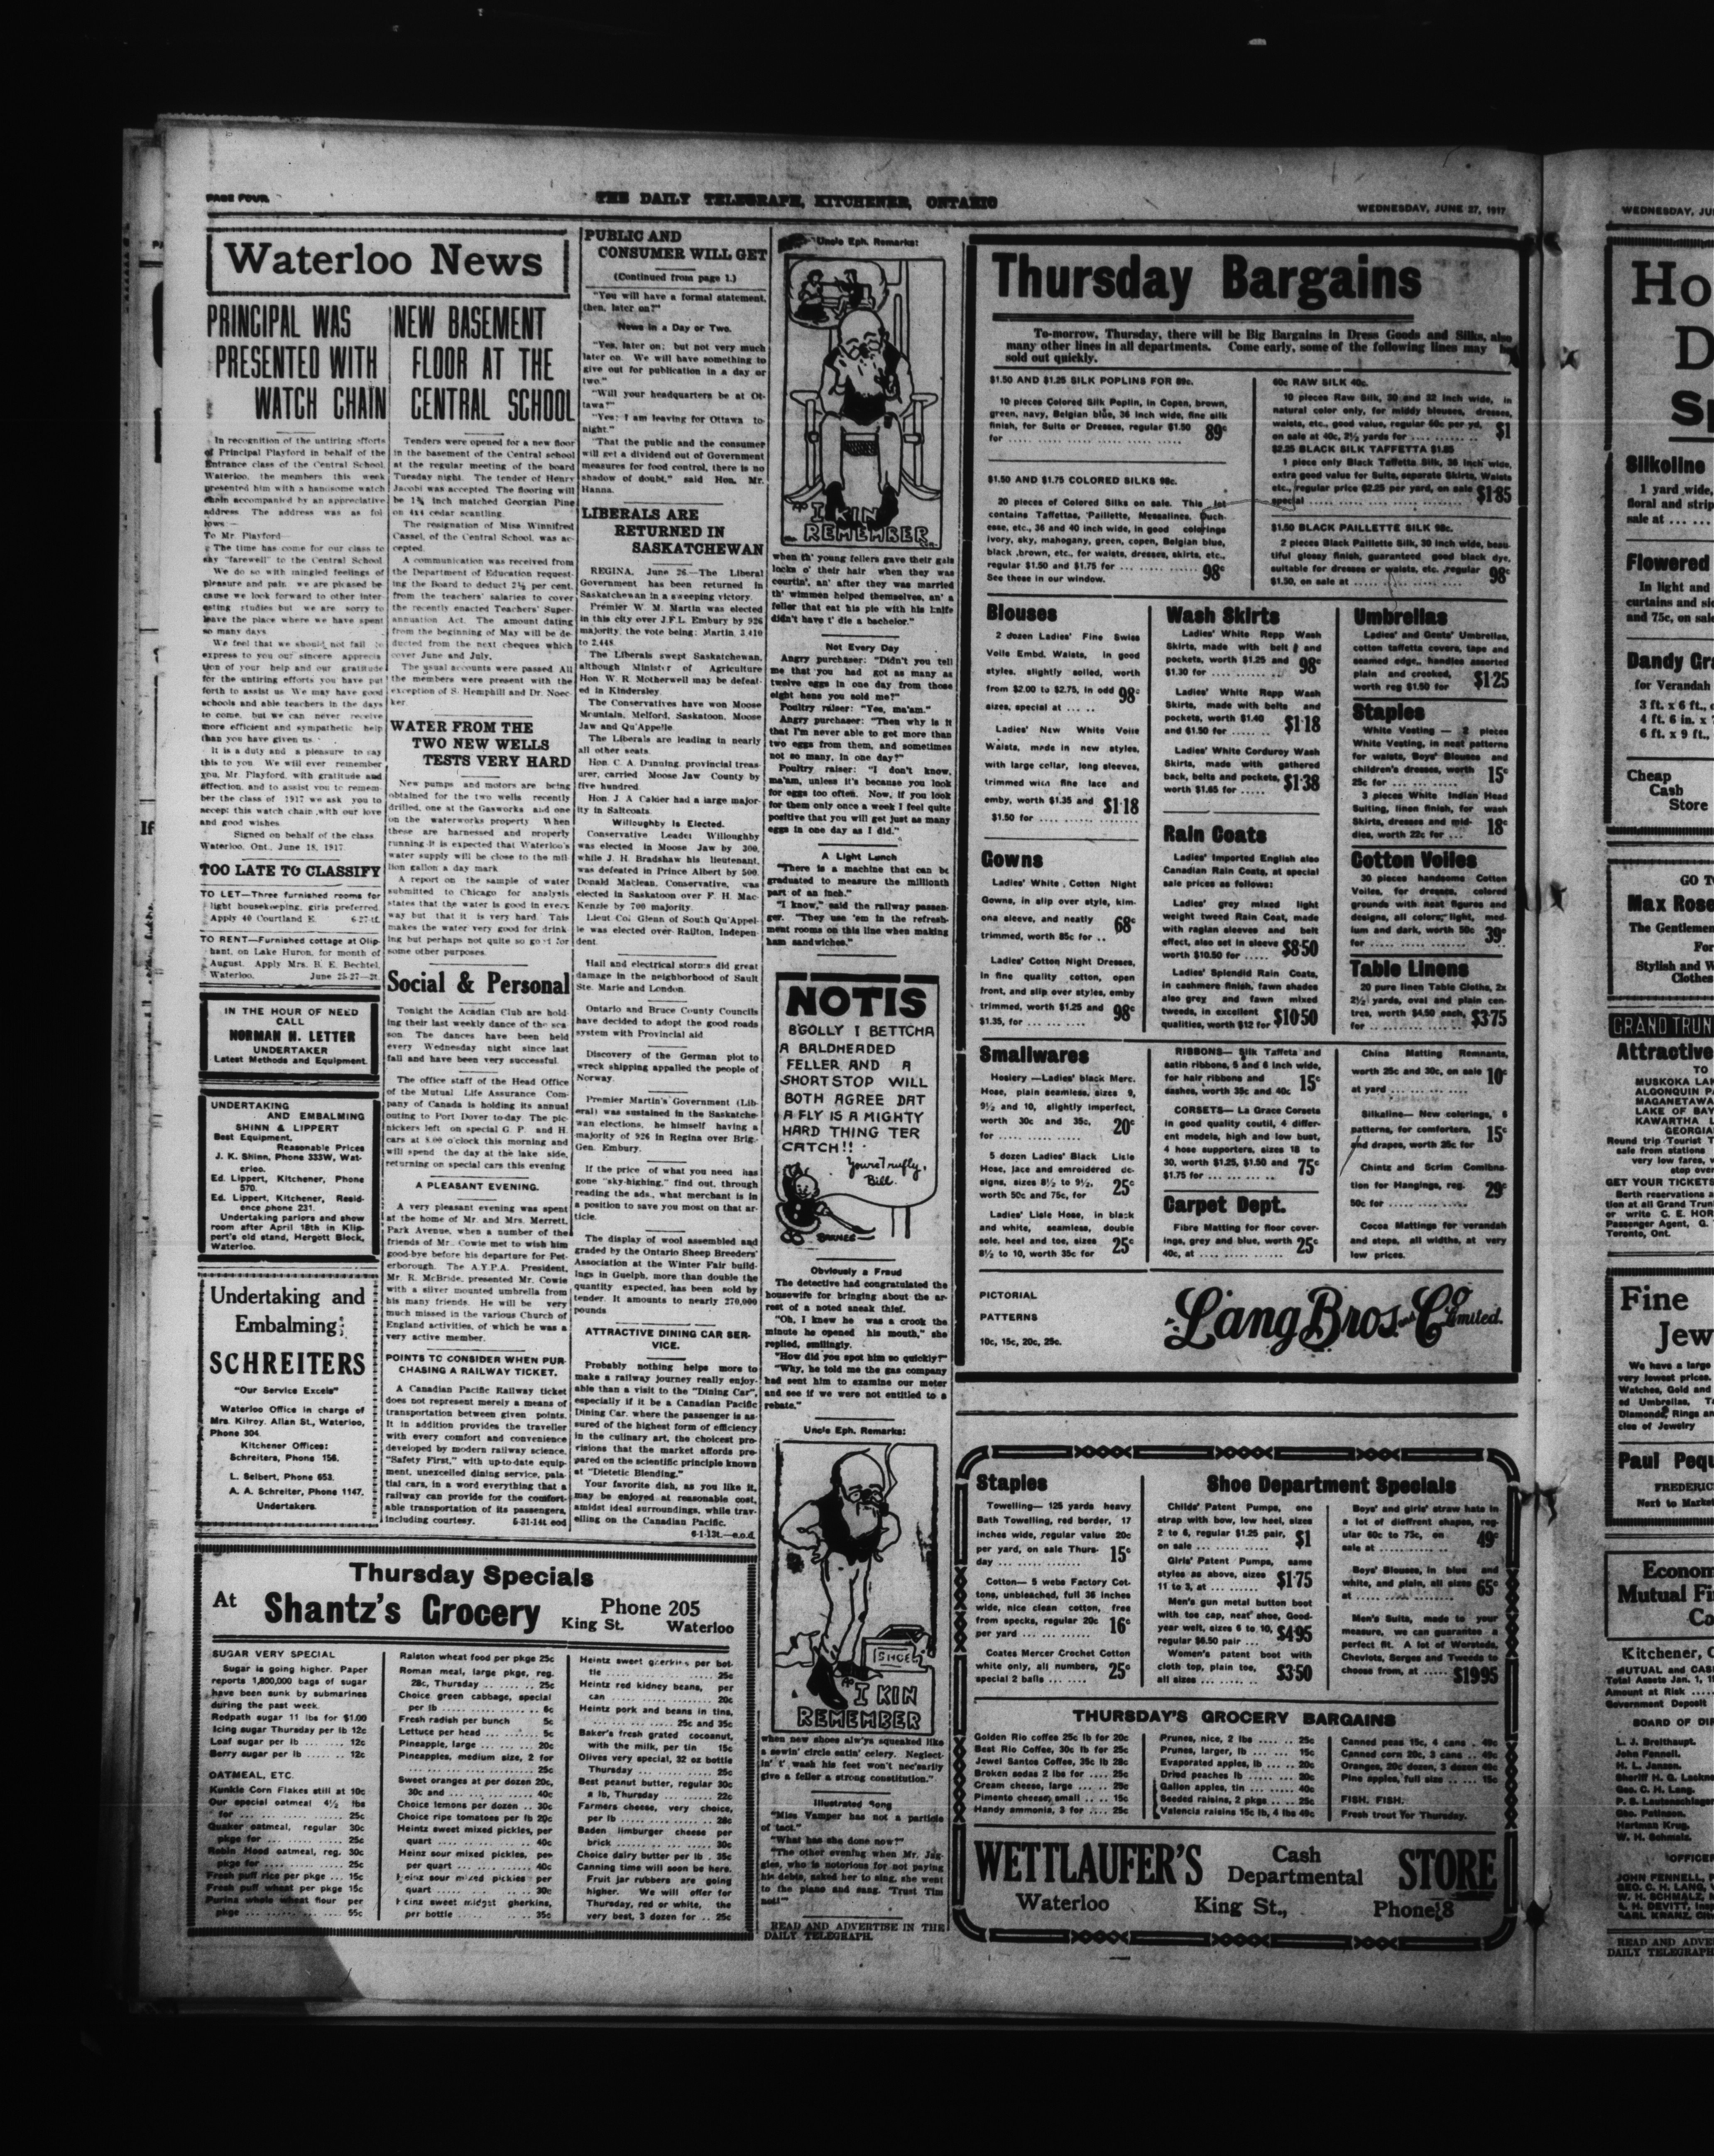 PAGE FOUR
THE DAILY TELEGRAPH, KITCHENER, ONTARIO
WEDNESDAY, JUNE 27, 1917
Waterloo News
PRINCIPAL WAS
PRESENTED WITH
WATCH CHAIN
In recognition of the untiring efforts
of Principal Playford in behalf of the
Entrance class of the Central School,
Waterloo, the members this week
presented him with a handsome watch
chain accompanied by an appreciative
address. The address was as fol
lows:—
To Mr. Playford—
The time has come for our class to
say "farewell" to the Central School
We do so with mingled feelings of
pleasure and pain, we are pleased be
cause we look forward to other inter
esting studies but we are sorry to
leave the place where we have spent
so many days.
We feel that we should not fail to
express to you our sincere apprecia
tion of your help and our gratitude
for the untiring efforts you have put
forth to assist us. We may have good
schools and able teachers in the days
to come, but we can never receive
more efficient and sympathetic help
than you have given us.
It is a duty and a pleasure to say
this to you. We will ever remember
you, Mr. Playford, with gratitude and
affection, and to assist you to remem-
ber the class of 1917 we ask you to
accept this watch chain with our love
and good wishes.
Signed on behalf of the class.
Waterloo, Ont., June 18, 1917.
TOO LATE TO CLASSIFY
TO LET—Three furnished rooms for
light housekeeping, girls preferred.
Apply 40 Courtland E. 6-27-tf.
TO RENT—Furnished cottage at Olip-
hant, on Lake Huron, for month of
August. Apply Mrs. B. E. Bechtel,
Waterloo. June 25-27—2t.
IN THE HOUR OF NEED
CALL
NORMAN H. LETTER
UNDERTAKER
Latest Methods and Equipment.
UNDERTAKING
AND EMBALMING
SHINN & LIPPERT
Best Equipment,
Reasonable Prices
J. K. Shinn, Phone 333W, Wat-
erloo.
Ed. Lippert, Kitchener, Phone
570.
Ed. Lippert, Kitchener, Resid-
ence phone 231.
Undertaking parlors and show
room after April 18th in Klip-
pert's old stand, Hergott Block,
Waterloo.
Undertaking and
Embalming
SCHREITERS
"Our Service Excels"
Waterloo Office in charge of
Mrs. Kilroy, Allan St., Waterloo,
Phone 304.
Kitchener Offices:
Schreiters, Phone 156.
L. Seibert, Phone 653.
A. A. Schreiter, Phone 1147.
Undertakers.
NEW BASEMENT
FLOOR AT THE
CENTRAL SCHOOL
Tenders were opened for a new floor
in the basement of the Central school
at the regular meeting of the board
Tuesday night. The tender of Henry
Jacobi was accepted. The flooring will
be 1¾ inch matched Georgian Pine
on 4x4 cedar scantling.
The resignation of Miss Winnifred
Cassel, of the Central School, was ac-
cepted.
A communication was received from
the Department of Education request-
ing the Board to deduct 2½ per cent.
from the teachers' salaries to cover
the recently enacted Teachers' Super-
annuation Act. The amount dating
from the beginning of May will be de-
ducted from the next cheques which
cover June and July.
The usual accounts were passed. All
the members were present with the
exception of S. Hemphill and Dr. Noec-
ker.
WATER FROM THE
TWO NEW WELLS
TESTS VERY HARD
New pumps and motors are being
obtained for the two wells recently
drilled, one at the Gasworks and one
on the waterworks property. When
these are harnessed and properly
running it is expected that Waterloo's
water supply will be close to the mil-
lion gallon a day mark.
A report on the sample of water
submitted to Chicago for analysis
states that the water is good in every
way but that it is very hard. This
makes the water very good for drink
ing but perhaps not quite so good for
some other purposes.
Social & Personal
Tonight the Acadian Club are hold-
ing their last weekly dance of the sea-
son. The dances have been held
every Wednesday night since last
fall and have been very successful.
The office staff of the Head Office
of the Mutual Life Assurance Com-
pany of Canada is holding its annual
outing to Port Dover to-day. The pic-
nickers left on special G. P. and H.
cars at 8.00 o'clock this morning and
will spend the day at the lake side,
returning on special cars this evening
A PLEASANT EVENING.
A very pleasant evening was spent
at the home of Mr. and Mrs. Merrett,
Park Avenue, when a number of the
friends of Mr. Cowie met to wish him
good-bye before his departure for Pet-
erborough. The A.Y.P.A. President,
Mr. R. McBride, presented Mr. Cowie
with a silver mounted umbrella from
his many friends. He will be very
much missed in the various Church of
England activities, of which he was a
very active member.
POINTS TO CONSIDER WHEN PUR-
CHASING A RAILWAY TICKET.
A Canadian Pacific Railway ticket
does not represent merely a means of
transportation between given points.
It in addition provides the traveller
with every comfort and convenience
developed by modern railway science.
"Safety First," with up-to-date equip-
ment, unexcelled dining service, pala-
tial cars, in a word everything that a
railway can provide for the comfort-
able transportation of its passengers,
including courtesy. 5-31-14t. eod
PUBLIC AND
CONSUMER WILL GET
(Continued from page 1.)
"You will have a formal statement,
then, later on?"
News in a Day or Two.
"Yes, later on; but not very much
later on. We will have something to
give out for publication in a day or
two."
"Will your headquarters be at Ot-
tawa?"
"Yes; I am leaving for Ottawa to-
night."
"That the public and the consumer
will get a dividend out of Government
measures for food control, there is no
shadow of doubt," said Hon. Mr.
Hanna.
LIBERALS ARE
RETURNED IN
SASKATCHEWAN
REGINA, June 26.—The Liberal
Government has been returned in
Saskatchewan in a sweeping victory.
Premier W. M. Martin was elected
in this city over J.F.L. Embury by 926
majority, the vote being: Martin, 3,410
to 2,448.
The Liberals swept Saskatchewan,
although Minister of Agriculture
Hon. W. R. Motherwell may be defeat-
ed in Kindersley.
The Conservatives have won Moose
Mountain, Melford, Saskatoon, Moose
Jaw and Qu'Appelle.
The Liberals are leading in nearly
all other seats.
Hon. C. A. Dunning, provincial treas-
urer, carried Moose Jaw County by
five hundred.
Hon. J. A. Calder had a large major-
ity in Saltcoats.
Willoughby Is Elected.
Conservative Leader Willoughby
was elected in Moose Jaw by 300,
while J. H. Bradshaw his lieutenant,
was defeated in Prince Albert by 500.
Donald Maclean, Conservative, was
elected in Saskatoon over F. H. Mac-
Kenzie by 700 majority.
Lieut. Col. Glenn of South Qu'Appel-
le was elected over Railton, Indepen-
dent.
Hail and electrical storms did great
damage in the neighborhood of Sault
Ste. Marie and London.
Ontario and Bruce County Councils
have decided to adopt the good roads
system with Provincial aid
Discovery of the German plot to
wreck shipping appalled the people of
Norway.
Premier Martin's Government (Lib-
eral) was sustained in the Saskatche-
wan elections, he himself having a
majority of 926 in Regina over Brig.-
Gen. Embury.
If the price of what you need has
gone "sky-highing," find out, through
reading the ads., what merchant is in
a position to save you most on that ar-
ticle.
The display of wool assembled and
graded by the Ontario Sheep Breeders'
Association at the Winter Fair build-
ings in Guelph, more than double the
quantity expected, has been sold by
tender. It amounts to nearly 270,000
pounds
ATTRACTIVE DINING CAR SER-
VICE.
Probably nothing helps more to
make a railway journey really enjoy-
able than a visit to the "Dining Car",
especially if it be a Canadian Pacific
Dining Car, where the passenger is as-
sured of the highest form of efficiency
in the culinary art, the choicest pro-
visions that the market affords pre-
pared on the scientific principle known
at "Dietetic Blending."
Your favorite dish, as you like it,
may be enjoyed at reasonable cost,
amidst ideal surroundings, while trav-
elling on the Canadian Pacific.
6-1-13t.—e.o.d.
Uncle Eph. Remarks:
I KIN
REMEMBER
when th' young fellers gave their gals
locks o' their hair when they was
courtin', an' after they was married
th' wimmen helped themselves, an' a
feller that eat his pie with his knife
didn't have t' die a bachelor."
Not Every Day
Angry purchaser: "Didn't you tell
me that you had got as many as
twelve eggs in one day from those
eight hens you sold me?"
Poultry raiser: "Yes, ma'am."
Angry purchaser: "Then why is it
that I'm never able to get more than
two eggs from them, and sometimes
not so many, in one day?"
Poultry raiser: "I don't know,
ma'am, unless it's because you look
for eggs too often. Now, if you look
for them only once a week I feel quite
positive that you will get just as many
eggs in one day as I did."
A Light Lunch
"There is a machine that can be
graduated to measure the millionth
part of an inch."
"I know," said the railway passen-
ger. "They use 'em in the refresh-
ment rooms on this line when making
ham sandwiches."
NOTIS
B'GOLLY I BETTCHA
A BALDHEADED
FELLER AND A
SHORTSTOP WILL
BOTH AGREE DAT
A FLY IS A MIGHTY
HARD THING TER
CATCH!!
Yours Trufly,
Bill.
BARNES
Obviously a Fraud
The detective had congratulated the
housewife for bringing about the ar-
rest of a noted sneak thief.
"Oh, I knew he was a crook the
minute he opened his mouth," she
replied, smilingly.
"How did you spot him so quickly?"
"Why, he told me the gas company
had sent him to examine our meter
and see if we were not entitled to a
rebate."
Uncle Eph. Remarks:
SHOE
I KIN
REMEMBER
when new shoes alw'ys squeaked like
a sewin' circle eatin' celery. Neglect-
in' t' wash his feet won't nec'sarily
give a feller a strong constitution."
Illustrated Song
"Miss Vamper has not a particle
of tact."
"What has she done now?"
"The other evening when Mr. Jag-
gles, who is notorious for not paying
his debts, asked her to sing, she went
to the piano and sang, 'Trust Tim
not!'"
READ AND ADVERTISE IN THE
DAILY TELEGRAPH.
Thursday Bargains
To-morrow, Thursday, there will be Big Bargains in Dress Goods and Silks, also
many other lines in all departments. Come early, some of the following lines may be
sold out quickly.
$1.50 AND $1.25 SILK POPLINS FOR 89c.
10 pieces Colored Silk Poplin, in Copen, brown,
green, navy, Belgian blue, 36 inch wide, fine silk
finish, for Suits or Dresses, regular $1.50
for .... 89c
$1.50 AND $1.75 COLORED SILKS 98c.
20 pieces of Colored Silks on sale. This lot
contains Taffettas, Paillette, Messalines, Duch-
esse, etc., 36 and 40 inch wide, in good colorings
ivory, sky, mahogany, green, copen, Belgian blue,
black, brown, etc., for waists, dresses, skirts, etc.,
regular $1.50 and $1.75 for .... 98c
See these in our window.
60c RAW SILK 40c.
10 pieces Raw Silk, 30 and 32 inch wide, in
natural color only, for middy blouses, dresses,
waists, etc., good value, regular 60c per yd,
on sale at 40c, 2½ yards for .... $1
$2.25 BLACK SILK TAFFETTA $1.85
1 piece only Black Taffetta Silk, 36 inch wide,
extra good value for Suits, separate Skirts, Waists
etc., regular price $2.25 per yard, on sale
special .... $1.85
$1.50 BLACK PAILLETTE SILK 98c.
2 pieces Black Paillette Silk, 30 inch wide, beau-
tiful glossy finish, guaranteed good black dye,
suitable for dresses or waists, etc., regular
$1.50, on sale at .... 98c
Blouses
2 dozen Ladies' Fine Swiss
Voile Embd. Waists, in good
styles, slightly soiled, worth
from $2.00 to $2.75, in odd 98c
sizes, special at ....
Ladies' New White Voile
Waists, made in new styles,
with large collar, long sleeves,
trimmed with fine lace and
emby, worth $1.35 and $1.18
$1.50 for ....
Gowns
Ladies' White Cotton Night
Gowns, in slip over style, kim-
ona sleeve, and neatly 68c
trimmed, worth 85c for ..
Ladies' Cotton Night Dresses,
in fine quality cotton, open
front, and slip over styles, emby
trimmed, worth $1.25 and 98c
$1.35, for ....
Wash Skirts
Ladies' White Repp Wash
Skirts, made with belt and
pockets, worth $1.25 and 98c
$1.30 for ....
Ladies' White Repp Wash
Skirts, made with belts and
pockets, worth $1.40 $1.18
and $1.50 for ....
Ladies' White Corduroy Wash
Skirts, made with gathered
back, belts and pockets, $1.38
worth $1.65 for ....
Rain Coats
Ladies' Imported English also
Canadian Rain Coats, at special
sale prices as follows:
Ladies' grey mixed light
weight tweed Rain Coat, made
with raglan sleeves and belt
effect, also set in sleeve $8.50
worth $10.50 for ....
Ladies' Splendid Rain Coats,
in cashmere finish, fawn shades
also grey and fawn mixed
tweeds, in excellent $10.50
qualities, worth $12 for
Umbrellas
Ladies' and Gents' Umbrellas,
cotton taffetta covers, tape and
seamed edge, handles assorted
plain and crooked, $1.25
worth reg $1.50 for
Staples
White Vesting — 2 pieces
White Vesting, in neat patterns
for waists, Boys' Blouses and
children's dresses, worth 15c
25c for ....
3 pieces White Indian Head
Suiting, linen finish, for wash
Skirts, dresses and mid- 18c
dies, worth 22c for ...
Cotton Voiles
30 pieces handsome Cotton
Voiles, for dresses, colored
grounds with neat figures and
designs, all colors, light, med-
ium and dark, worth 50c 39c
for ....
Table Linens
20 pure linen Table Cloths, 2x
2½ yards, oval and plain cen-
tres, worth $4.50 each, $3.75
for ....
Smallwares
Hosiery —Ladies' black Merc.
Hose, plain seamless, sizes 9,
9½ and 10, slightly imperfect,
worth 30c and 35c, 20c
for ....
5 dozen Ladies' Black Lisle
Hose, lace and emroidered de-
signs, sizes 8½ to 9½, 25c
worth 50c and 75c, for
Ladies' Lisle Hose, in black
and white, seamless, double
sole, heel and toe, sizes 25c
8½ to 10, worth 35c for
RIBBONS— Silk Taffeta and
satin ribbons, 5 and 6 inch wide,
for hair ribbons and 15c
sashes, worth 35c and 40c
CORSETS— La Grace Corsets
in good quality coutil, 4 differ-
ent models, high and low bust,
4 hose supporters, sizes 18 to
30, worth $1.25, $1.50 and 75c
$1.75 for ....
Carpet Dept.
Fibre Matting for floor cover-
ings, grey and blue, worth 25c
40c, at ....
China Matting Remnants,
worth 25c and 30c, on sale 10c
at yard ....
Silkaline— New colorings,
patterns, for comforters, 15c
and drapes, worth 25c for
Chintz and Scrim Combina-
tion for Hangings, reg. 29c
50c for ....
Cocoa Mattings for verandah
and steps, all widths, at very
low prices.
PICTORIAL
PATTERNS
10c, 15c, 20c, 25c.
Lang Bros. and Co Limited.
Thursday Specials
At Shantz's Grocery
Phone 205
King St. Waterloo
SUGAR VERY SPECIAL
Sugar is going higher. Paper
reports 1,800,000 bags of sugar
have been sunk by submarines
during the past week.
Redpath sugar 11 lbs for $1.00
Icing sugar Thursday per lb 12c
Loaf sugar per lb .... 12c
Berry sugar per lb .... 12c
OATMEAL, ETC.
Kunkle Corn Flakes still at 10c
Our special oatmeal 4½ lbs
for .... 25c
Quaker oatmeal, regular 30c
pkge for .... 25c
Robin Hood oatmeal, reg. 30c
pkge for .... 25c
Fresh puff rice per pkge ... 15c
Fresh puff wheat per pkge 15c
Purina whole wheat flour per
pkge .... 55c
Ralston wheat food per pkge 25c
Roman meal, large pkge, reg.
28c, Thursday .... 25c
Choice green cabbage, special
per lb .... 6c
Fresh radish per bunch 5c
Lettuce per head .... 5c
Pineapple, large .... 20c
Pineapples, medium size, 2 for
.... 25c
Sweet oranges at per dozen 20c,
30c and .... 40c
Choice lemons per dozen .. 30c
Choice ripe tomatoes per lb 20c
Heintz sweet mixed pickles, per
quart .... 40c
Heinz sour mixed pickles, per
per quart .... 40c
Heinz sour mixed pickles per
quart .... 30c
Heinz sweet midget gherkins,
per bottle .... 35c
Heintz sweet gherkins per bot-
tle .... 25c
Heintz red kidney beans, per
can .... 20c
Heintz pork and beans in tins,
.... 25c and 35c
Baker's fresh grated cocoanut,
with the milk, per tin .. 15c
Olives very special, 32 oz bottle
Thursday .... 25c
Best peanut butter, regular 30c
a lb, Thursday .... 22c
Farmers cheese, very choice,
per lb .... 28c
Baden limburger cheese per
brick .... 30c
Choice dairy butter per lb . 35c
Canning time will soon be here.
Fruit jar rubbers are going
higher. We will offer for
Thursday, red or white, the
very best, 3 dozen for .. 25c
Staples
Towelling— 125 yards heavy
Bath Towelling, red border, 17
inches wide, regular value 20c
per yard, on sale Thurs- 15c
day ....
Cotton— 5 webs Factory Cot-
tons, unbleached, full 36 inches
wide, nice clean cotton, free
from specks, regular 20c 16c
per yard ....
Coates Mercer Crochet Cotton
white only, all numbers, 25c
special 2 balls ....
Shoe Department Specials
Childs' Patent Pumps, one
strap with bow, low heel, sizes
2 to 6, regular $1.25 pair, $1
on sale ....
Girls' Patent Pumps, same
styles as above, sizes $1.75
11 to 3, at ....
Men's gun metal button boot
with toe cap, neat shoe, Good-
year welt, sizes 6 to 10, $4.95
regular $6.50 pair ...
Women's patent boot with
cloth top, plain toe, $3.50
all sizes ....
Boys' and girls' straw hats in
a lot of dieffrent shapes, reg-
ular 60c to 75c, on 49c
sale at ....
Boys' Blouses, in blue and
white, and plain, all sizes 65c
at ....
Men's Suits, made to your
measure, we can guarantee a
perfect fit. A lot of Worsteds,
Cheviots, Serges and Tweeds to
choose from, at .... $19.95
THURSDAY'S GROCERY BARGAINS
Golden Rio coffee 25c lb for 20c
Best Rio Coffee, 30c lb for 25c
Jewel Santos Coffee, 35c lb 28c
Broken sodas 2 lbs for .... 25c
Cream cheese, large .... 29c
Pimento cheese, small .. 15c
Handy ammonia, 3 for .... 25c
Prunes, nice, 2 lbs .... 25c
Prunes, larger, lb .... 15c
Evaporated apples, lb .... 20c
Dried peaches lb .... 20c
Gallon apples, tin .... 40c
Seeded raisins, 2 pkgs .... 25c
Valencia raisins 15c lb, 4 lbs 49c
Canned peas 15c, 4 cans . 49c
Canned corn 20c, 3 cans .. 49c
Oranges, 20c dozen, 3 dozen 49c
Pine apples, full size .. 15c
FISH. FISH.
Fresh trout for Thursday.
WETTLAUFER'S Cash
Departmental STORE
Waterloo King St., Phone 8
WEDNESDAY, JU
Ho
D
Sp
Silkoline
1 yard wide,
floral and strip
sale at ...
Flowered
In light and
curtains and si
and 75c, on sale
Dandy Gra
for Verandah
3 ft. x 6 ft.,
4 ft. 6 in. x
6 ft. x 9 ft.,
Cheap
Cash
Store
GO T
Max Rose
The Gentlemen
For
Stylish and W
Clothes
GRAND TRUN
Attractive
TO
MUSKOKA LAK
ALGONQUIN P
MAGANETAWA
LAKE OF BAY
KAWARTHA L
GEORGIA
Round trip Tourist T
sale from stations
very low fares, w
stop over
GET YOUR TICKETS
Berth reservations a
tion at all Grand Trun
or write C. E. HOR
Passenger Agent, G.
Toronto, Ont.
Fine
Jew
We have a large
very lowest prices.
Watches, Gold and
ed Umbrellas, T
Diamonds, Rings an
cles of Jewelry
Paul Pequ
FREDERIC
Next to Market
Econom
Mutual Fi
Co
Kitchener, O
MUTUAL and CAS
Total Assets Jan. 1, 1
Amount at Risk ....
Government Deposit
BOARD OF DI
L. J. Breithaupt.
John Fennell.
H. L. Janzen.
Geo. C. H. Lang.
Hartman Krug.
W. H. Schmalz.
OFFICE
JOHN FENNELL, P
GEO. C. H. LANG, V
W. H. SCHMALZ, M
KARL KRANZ,
READ AND ADVE
DAILY TELEGRAPH